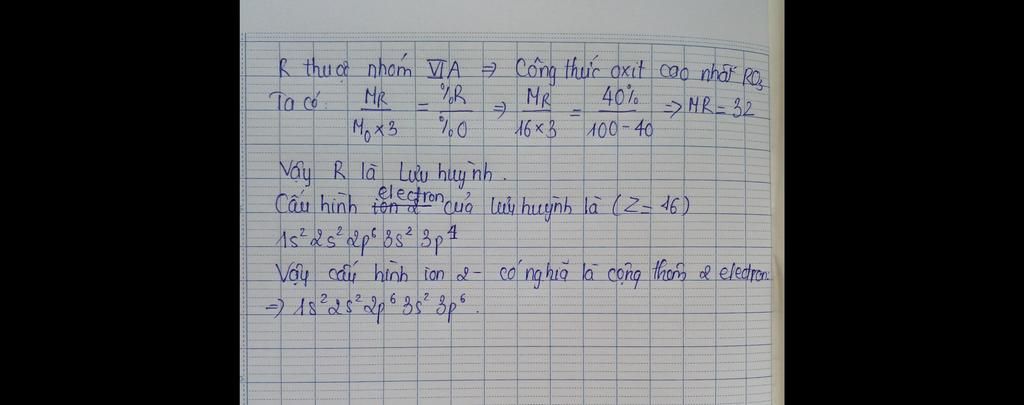 R thuộc nhóm VIA ⇒ Công thức oxit cao nhất RO₃
Ta có: MR / (MO × 3) = %R / %O ⇒ MR / (16×3) = 40% / (100-40) ⇒ MR = 32
Vậy R là Lưu huỳnh.
Cấu hình electron của lưu huỳnh là (Z=16)
1s² 2s² 2p⁶ 3s² 3p⁴
Vậy cấu hình ion 2- có nghĩa là cộng thêm 2 electron
⇒ 1s² 2s² 2p⁶ 3s² 3p⁶.